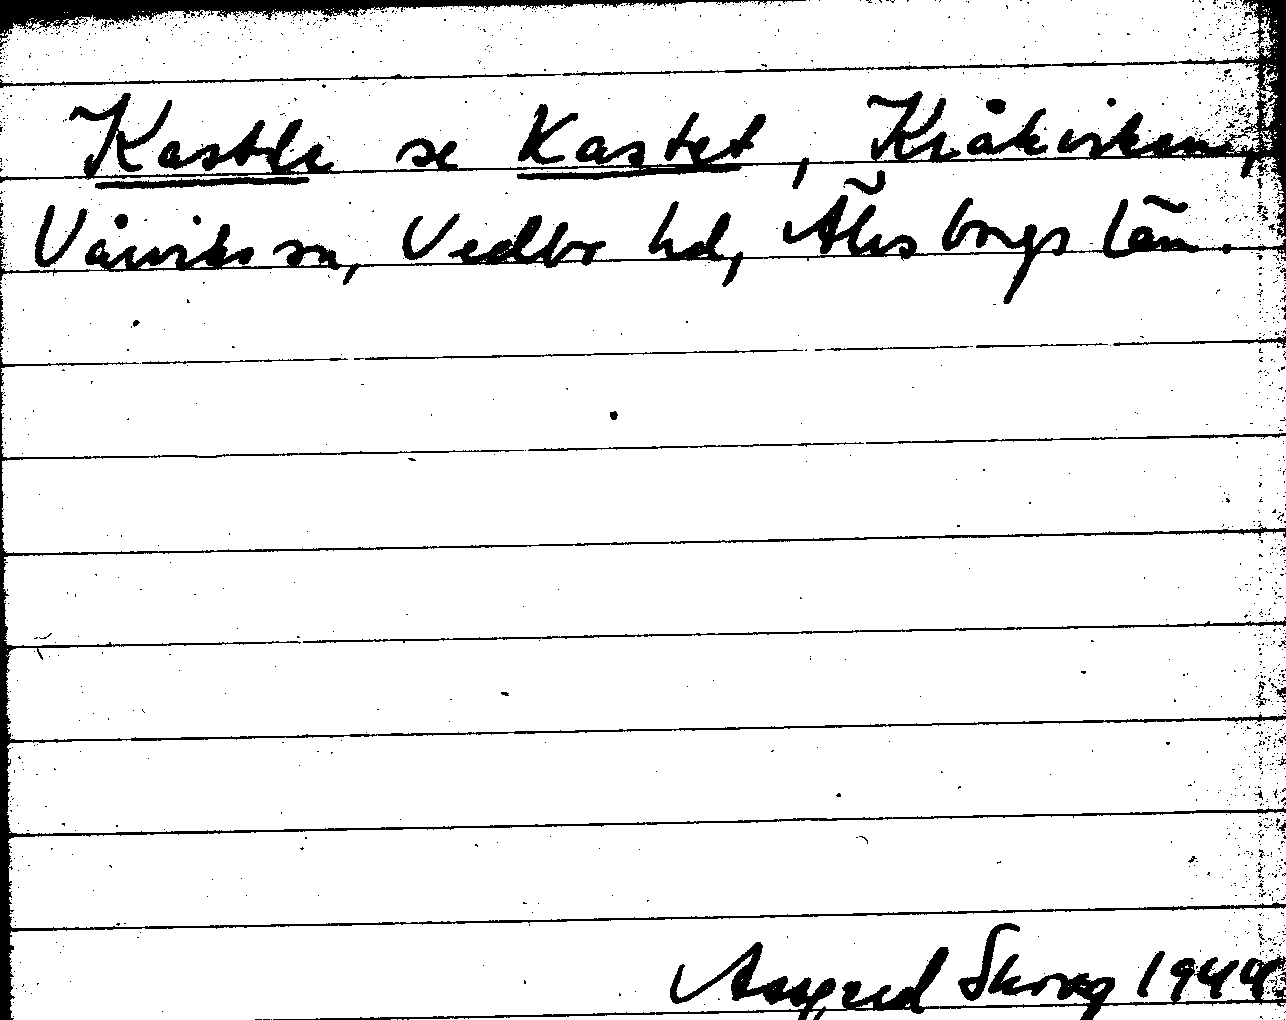 Kastle se Kastet, Kråkviken,
Vårviks sn, Vedbo hd, Älvsborgs län.
Skog 1944.